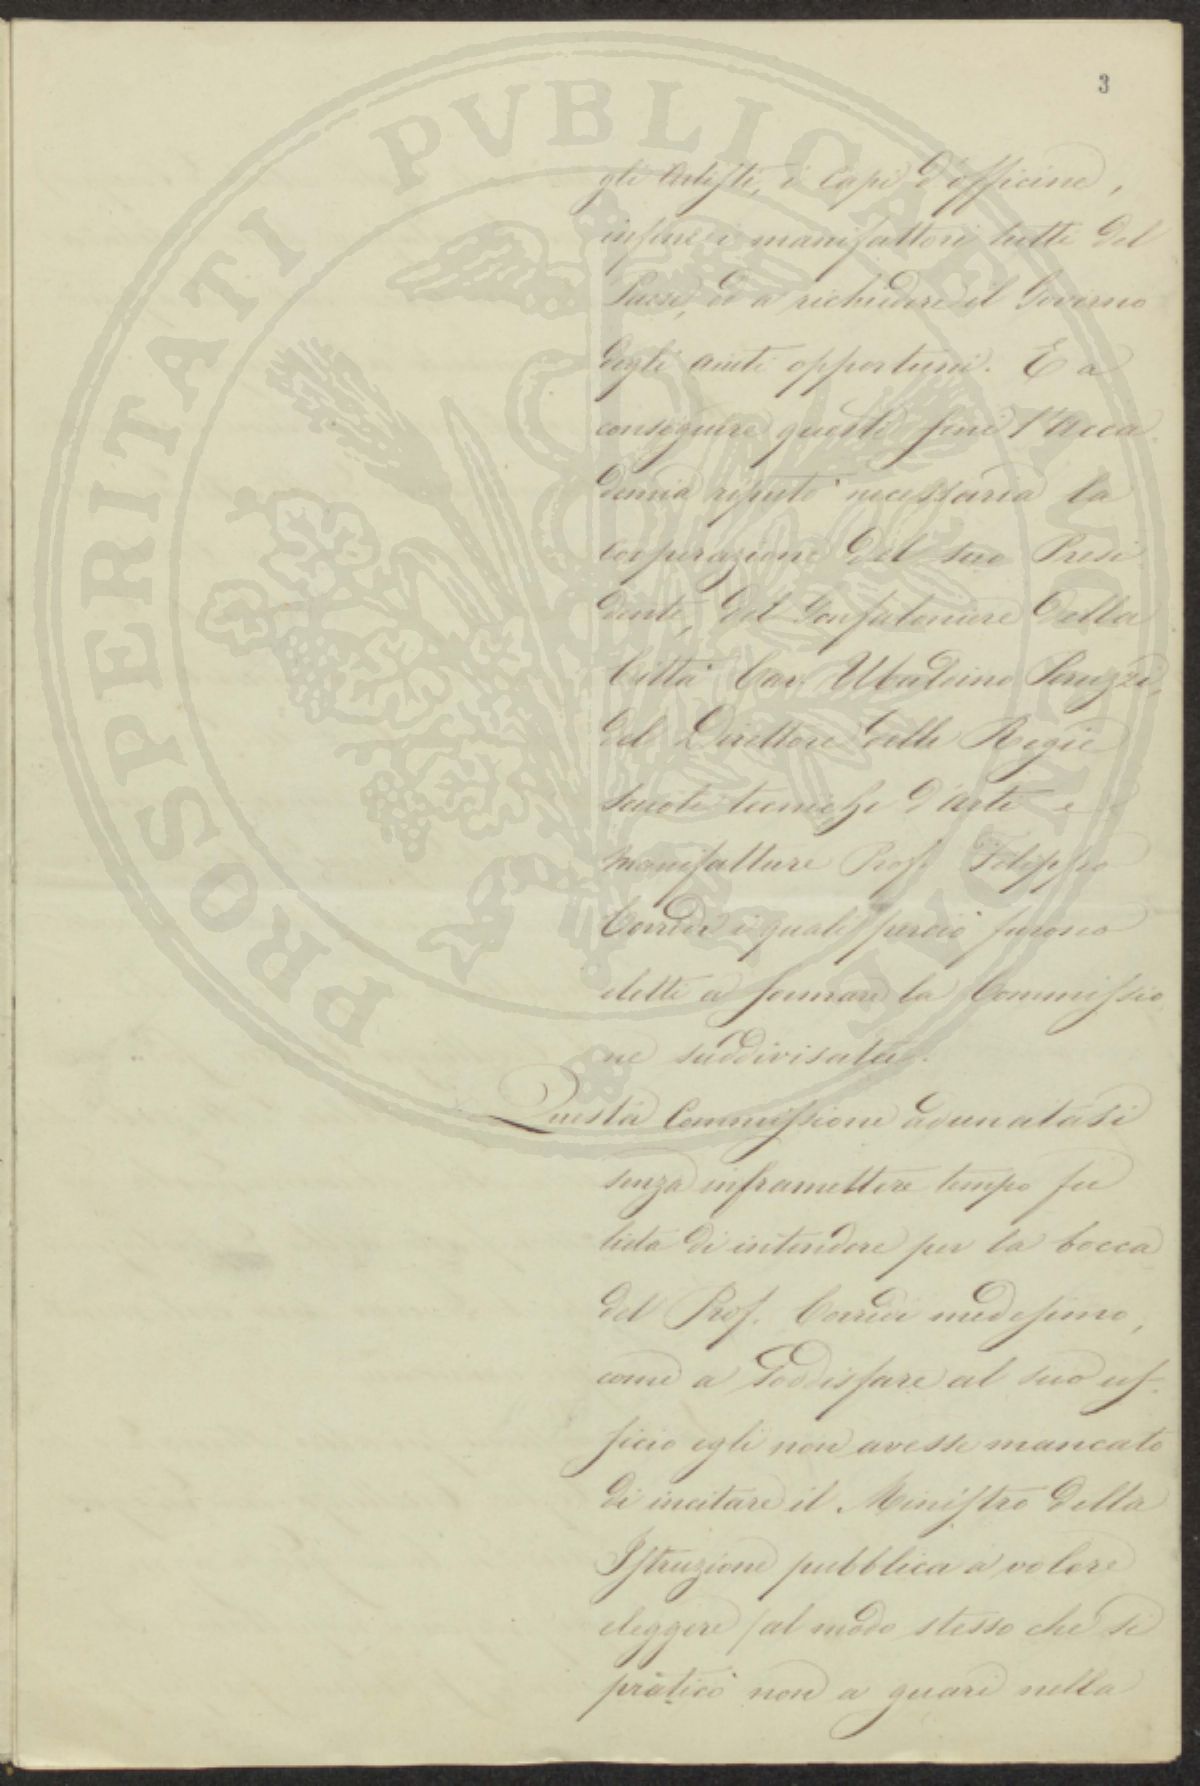 3
gli Artisti, i Capi d'officine,
infine i manifattori tutti del
Paese, ed a richiedere il Governo
degli aiuti opportuni. E a
conseguire questi fini l'Acca
demia reputò necessaria la
cooperazione del suo Presi
dente, del Gonfaloniere della
Città Cav. Ubaldino Peruzzi,
del Direttore delle Regie
Scuole tecniche d'Arti e
Manifatture Prof. Filippo
Corridi i quali perciò furono
eletti a formare la Commissio
ne suddivisata.
Questa Commissione adunatasi
senza inframettere tempo fu
lieta di intendere per la bocca
del Prof. Corridi medesimo,
come a soddisfare al suo uf-
ficio egli non avesse mancato
di incitare il Ministro della
Istruzione pubblica a volere
eleggere (al modo stesso che si
praticò non a guari nella
PROSPERITATI PVBLICAE AVGENDAE